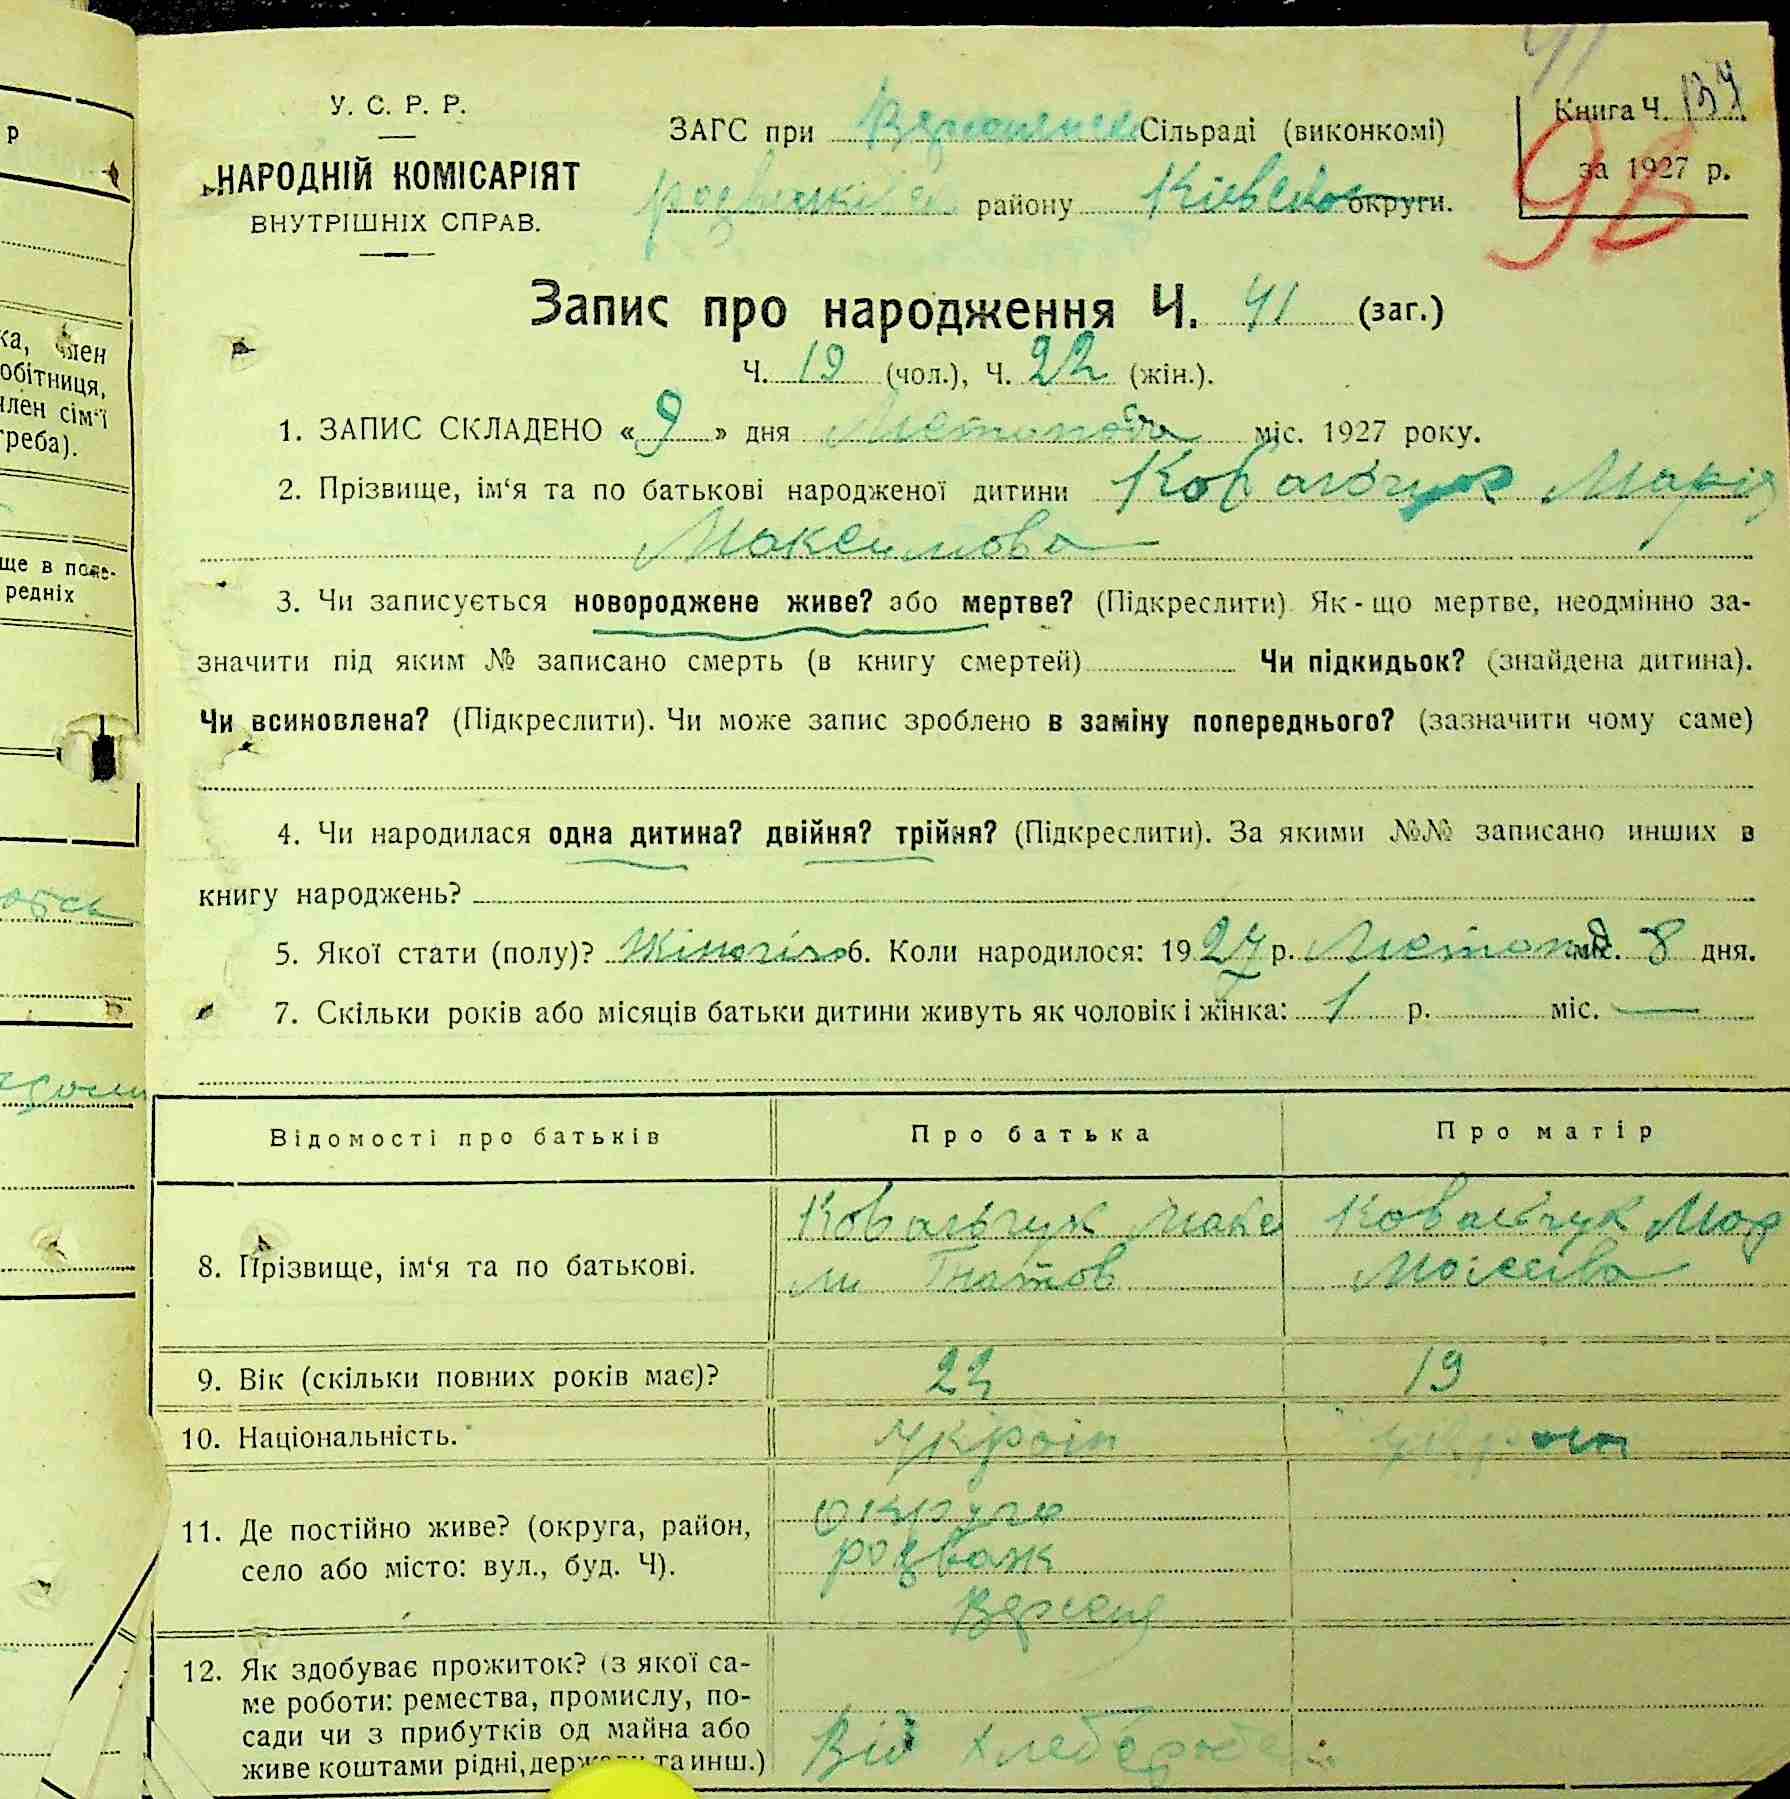 У. С. Р. Р.
НАРОДНІЙ КОМІСАРІЯТ
ВНУТРІШНІХ СПРАВ.
ЗАГС при Сільраді (виконкомі)
району Київсько округи.
Книга Ч.
за 1927 р.
9В
Запис про народження Ч. 41 (заг.)
Ч. 19 (чол.), Ч. 22 (жін.).
1. ЗАПИС СКЛАДЕНО « 9 » дня Листопада міс. 1927 року.
2. Прізвище, ім‘я та по батькові народженої дитини Ковальчук Марія
Максимова
3. Чи записується новороджене живе? або мертве? (Підкреслити) Як-що мертве, неодмінно за-
значити під яким № записано смерть (в книгу смертей) Чи підкидьок? (знайдена дитина).
Чи всиновлена? (Підкреслити). Чи може запис зроблено в заміну попереднього? (зазначити чому саме)
4. Чи народилася одна дитина? двійня? трійня? (Підкреслити). За якими №№ записано инших в
книгу народжень?
5. Якої стати (полу)? 6. Коли народилося: 1927 р. Листопад міс. 8 дня.
7. Скільки років або місяців батьки дитини живуть як чоловік і жінка: 1 р. міс. —
Відомості про батьків Про батька Про матір
8. Прізвище, ім‘я та по батькові. Ковальчук Макси Ковальчук
м Гнатов Моісеива
9. Вік (скільки повних років має)? 19
10. Національність. Україн
11. Де постійно живе? (округа, район,
село або місто: вул., буд. Ч).
округа
розваж
12. Як здобуває прожиток? (з якої са-
ме роботи: ремества, промислу, по-
сади чи з прибутків од майна або
живе коштами рідні, та инш.)
Від
р
ка, член
обітниця,
член сім‘ї
треба).
ще в попе-
редніх